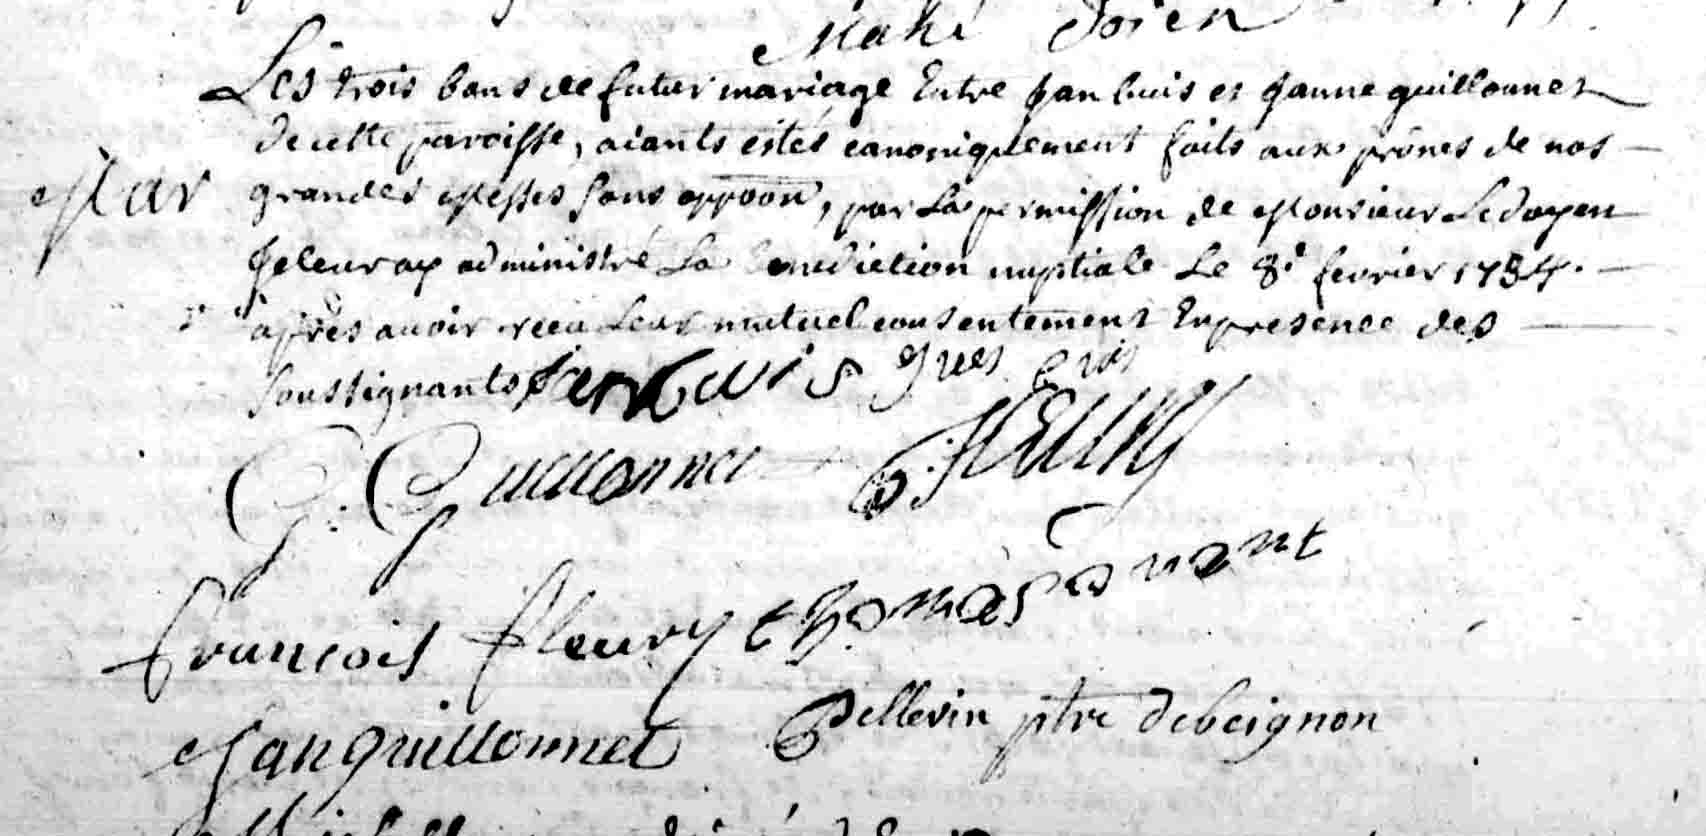 Mahé Doien
Les trois bans de futur mariage Entre Jan luis et Janne guillounet
de cette paroisse, aiants estés canoniquement faits aux prônes de nos
Mar
grandes Messes sans oppoõn, par La permission de Monsieur Le doyen
Je leur ay administré La benediction nuptiale Le 8e fevrier 1734.
après avoir receu Leur mutuel consentement En presence des
soussignants Jen Luis Yves
G. Guillonnet P. Fleury
francois fleury thomas
Jan guillonnet Pellerin ptre de beignon